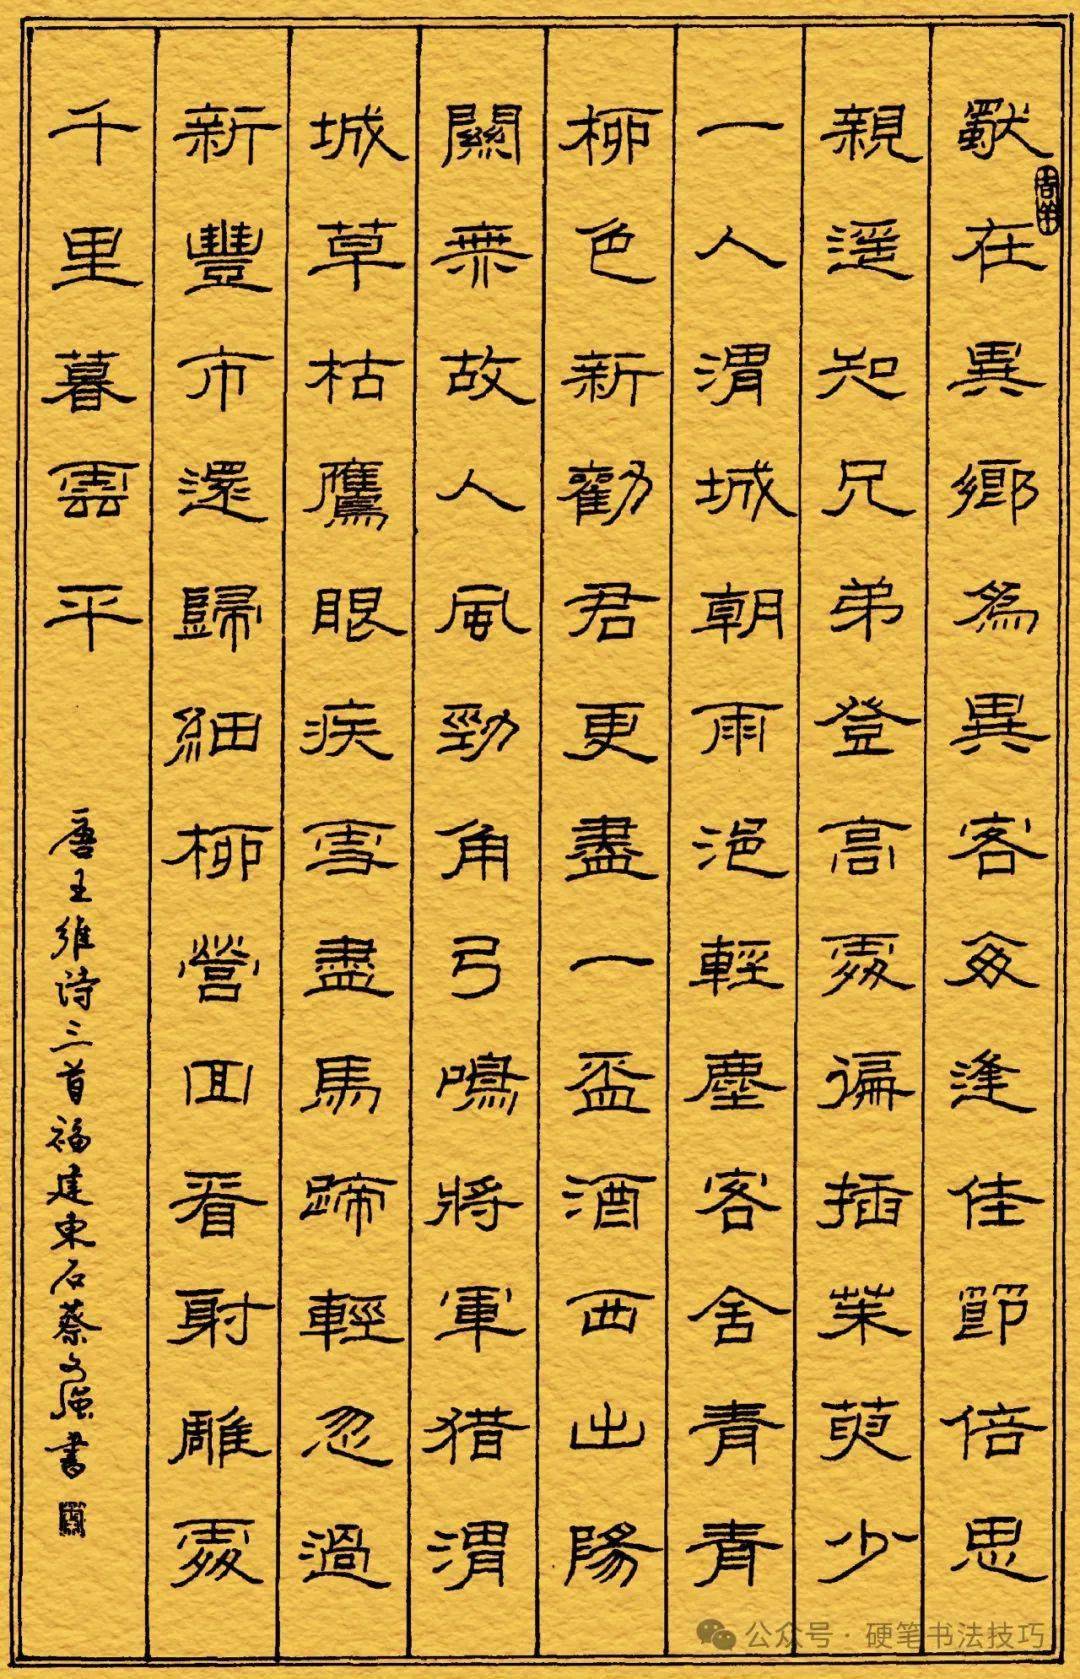 獨在異鄉為異客每逢佳節倍思
親遥知兄弟登高處徧插茱萸少
一人渭城朝雨浥輕塵客舍青青
柳色新勸君更盡一盃酒西出陽
關無故人風勁角弓鳴將軍猎渭
城草枯鷹眼疾雪盡馬蹄輕忽過
新豐市還歸細柳營回看射雕處
千里暮雲平
唐王維诗三首福建東石蔡文强書
公众号·硬笔书法技巧